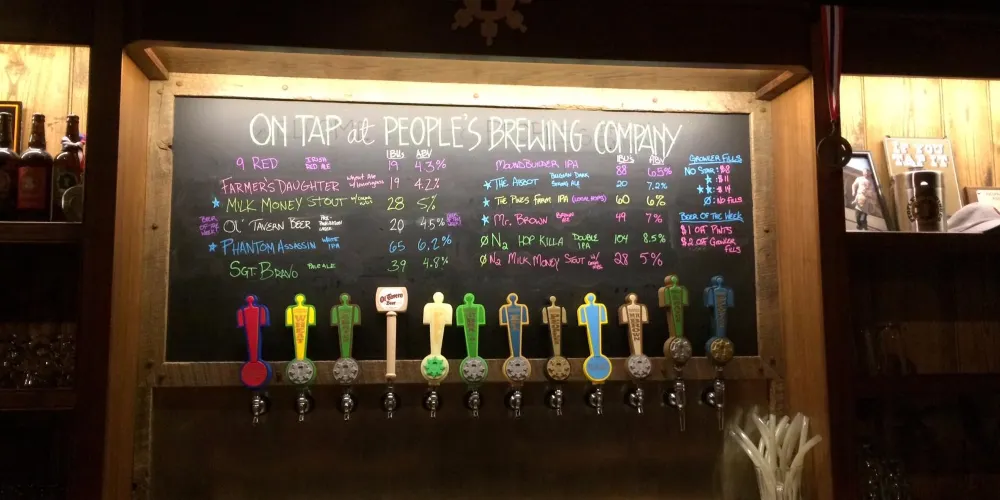 ON TAP at PEOPLE'S BREWING COMPANY
IBUs ABV
9 RED IRISH RED ALE 19 4.3%
FARMER'S DAUGHTER WHEAT ALE W/ LEMONGRASS 19 4.2%
★ MILK MONEY STOUT 28 5%
BEER OF THE WEEK OL' TAVERN BEER PRE-PROHIBITION LAGER 20 4.5% BEER OF THE WEEK
★ PHANTOM ASSASSIN WHITE IPA 65 6.2%
SGT. BRAVO PALE ALE 39 4.8%
IBUs ABV
MOUNDBUILDER IPA 88 6.5%
★ THE ABBOT BELGIAN DARK STRONG ALE 20 7.2%
★ THE PINES FARM IPA (LOCAL HOPS) 60 6%
★ MR. BROWN BROWN ALE 49 7%
Ø N2 HOP KILLA DOUBLE IPA 104 8.5%
Ø N2 MILK MONEY STOUT 28 5%
GROWLER FILLS
NO STAR: $8
★: $11
★★: $14
Ø: NO FILLS
BEER OF THE WEEK
$1 OFF PINTS
$2 OFF GROWLER FILLS
IF YOU TAP IT
Ol' Tavern Beer